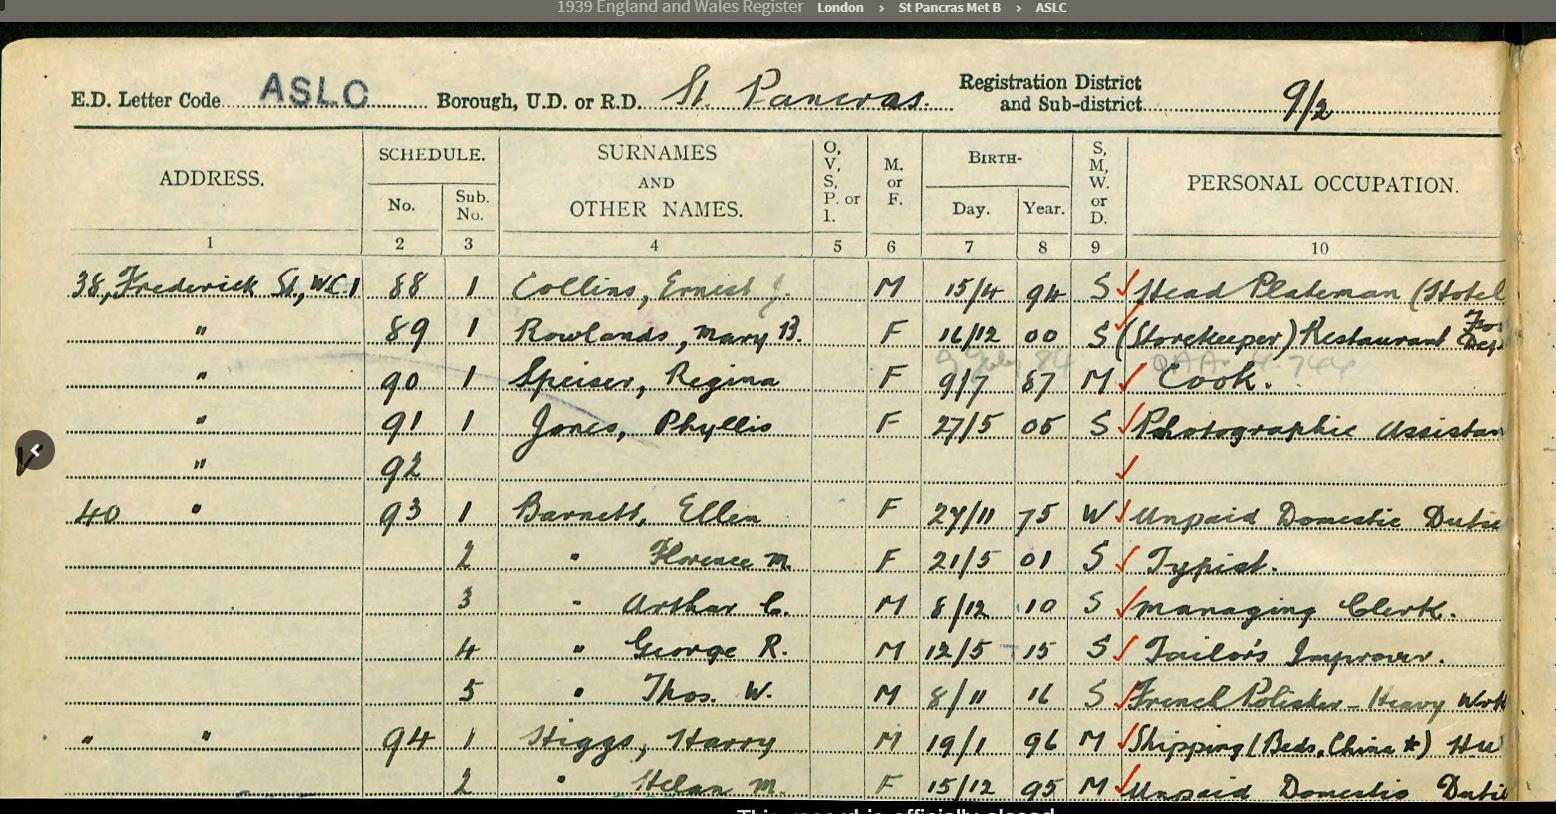 1939 England and Wales Register London > St Pancras Met B > ASLC
E.D. Letter Code ASLC Borough, U.D. or R.D. St. Pancras. Registration District and Sub-district 9/2
ADDRESS. SCHEDULE. No. Sub. No. SURNAMES AND OTHER NAMES. O, V, S, P. or I. M. or F. BIRTH- Day. Year. S, M, W. or D. PERSONAL OCCUPATION.
1 2 3 4 5 6 7 8 9 10
38, Frederick St., W.C.1 88 1 Collins, Ernest J. M 15/4 94 S Head Plateman (Hotel
" 89 1 Rowlands, Mary B. F 16/12 00 S (Storekeeper) Restaurant
" 90 1 Speiser, Regina F 9/7 87 M Cook.
" 91 1 Jones, Phyllis F 27/5 05 S Photographic Assistan
" 92
40 " 93 1 Barnett, Ellen F 27/11 75 W Unpaid Domestic Dutie
2 " Florence M. F 21/5 01 S Typist.
3 " Arthur C. M 8/12 10 S Managing Clerk.
4 " George R. M 12/5 15 S Tailor's Improver.
5 " Thos. W. M 8/11 16 S French Polisher - Heavy Work
" " 94 1 Higgs, Harry M 19/1 96 M Shipping (Beds, China *)
2 " Helan M. F 15/12 95 M Unpaid Domestic Dutie